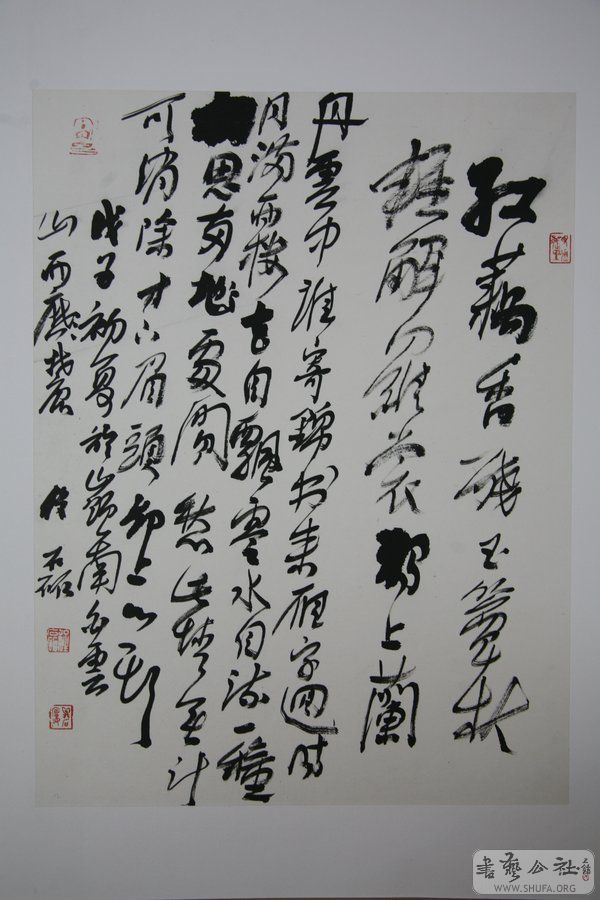 红藕香殘玉簟秋
輕解羅裳獨上蘭
舟雲中誰寄錦書來雁字迴時
月滿西樓花自飄零水自流一種
相思両地處閒愁此情無計
可消除才下眉頭却上心頭
戊子初夏於嶺南白雲
山西麓
書藝公社
WWW.SHUFA.ORG